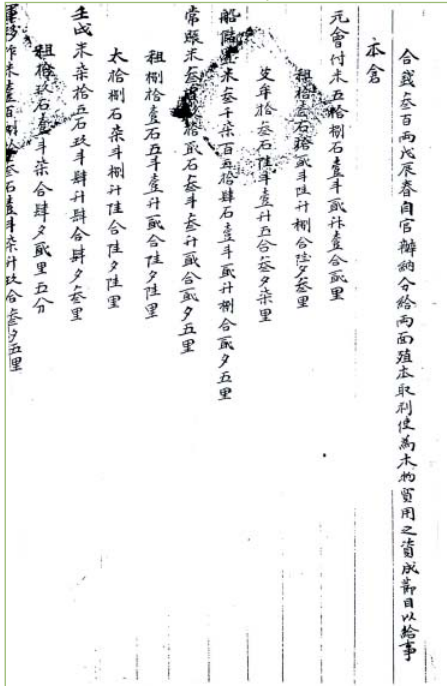 合錢叁百兩戊辰春自官辦納分給兩面殖本取利使為木物貿用之資成節目以給事
本倉
元會付米五拾捌石壹斗貳升壹合貳里
租拾壹石拾貳斗陸升捌合陸夕叁里
牟拾叁石陸斗壹升五合叁夕柒里
船米叁千柒百五拾肆石壹斗貳升捌合貳夕五里
常賑米叁拾貳石叁斗叁升貳合貳夕五里
租捌拾壹石五斗壹升貳合陸夕陸里
太拾捌石柒斗捌升陸合陸夕陸里
壬戌米柒拾五石玖斗肆升肆合肆夕叁里
租拾玖石壹斗柒合肆夕貳里五分
作米壹百捌叁石壹斗柒升玖合叁夕五里